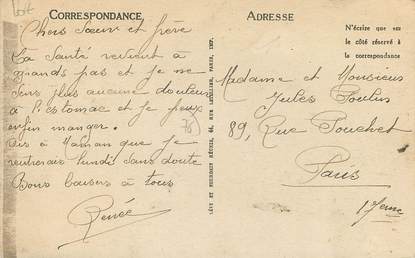 CORRESPONDANCE
Chers Sœur et frère
La Santé revient à
grands pas et je ne
sens plus aucune douleurs
à l'estomac et je peux
enfin manger.
Dis à Maman que je
rentrerais lundi sans doute
Bons baisers à tous
Renée
78
LÉVY ET NEURDEIN RÉUNIS, 44, RUE LETELLIER, PARIS, IMP.
ADRESSE
N'écrire que sur
le côté réservé à
la correspondance
Madame et Monsieur
Jules Poulin
89, Rue Pouchet
Paris
17eme